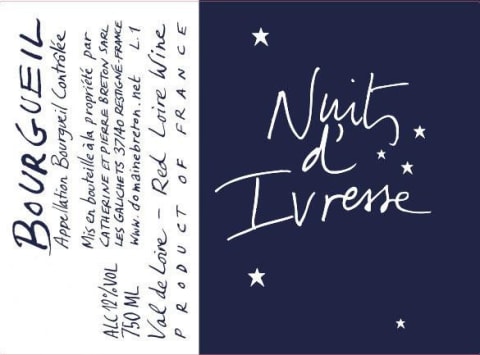 BOURGUEIL
Appellation Bourgueil Contrôlée
Mis en bouteille à la propriété par
CATHERINE ET PIERRE BRETON SARL
LES GALICHETS 37140 RESTIGNÉ-FRANCE
www.domainebreton.net L.1
ALC 12%VOL
750 ML
Val de Loire - Red Loire Wine
PRODUCT OF FRANCE
Nuits
d'
Ivresse